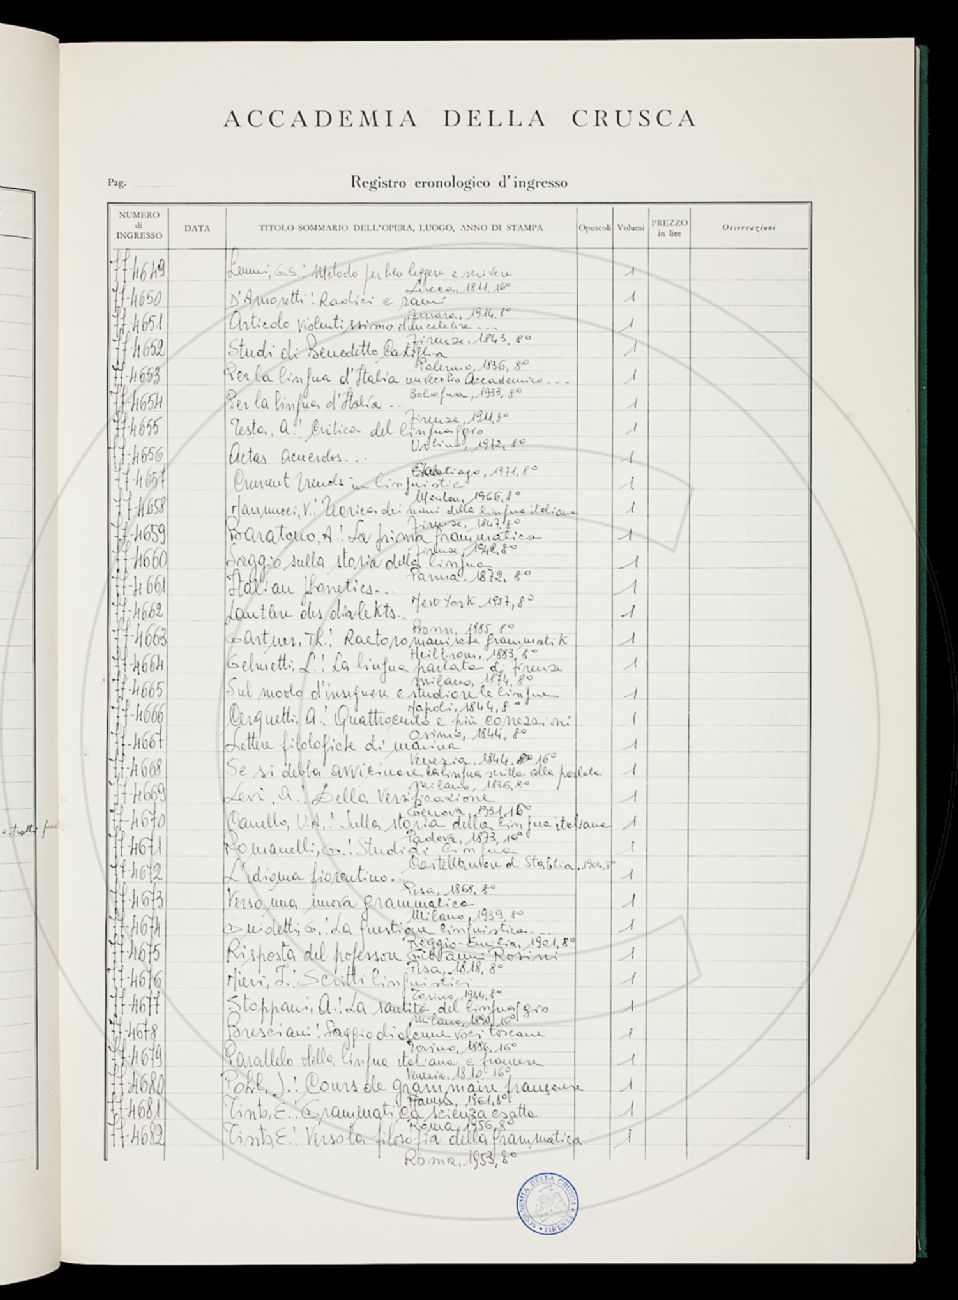 ACCADEMIA DELLA CRUSCA
Pag.
Registro cronologico d'ingresso
NUMERO di INGRESSO DATA TITOLO SOMMARIO DELL'OPERA, LUOGO, ANNO DI STAMPA Opuscoli Volumi PREZZO in lire Osservazioni
77-4649 G.S.: Metodo per ben leggere e scrivere 1
Lucca, 1811, 16°
77-4650 D'Amoretti: Radici e rami 1
1914, 8°
77-4651 Articolo violentissimo 1
Firenze, 1843, 8°
77-4652 Studi di Benedetto Castiglia 1
Palermo, 1836, 8°
77-4653 Per la lingua d'Italia un vecchio Accademico... 1
Bologna, 1933, 8°
77-4654 Per la lingua d'Italia... 1
Firenze, 1911, 8°
77-4655 Testa, A.: Critica del linguaggio 1
Urbino, 1972, 8°
77-4656 Actas acuerdos... 1
Santiago, 1971, 8°
77-4657 Current trends in linguistic 1
Mouton, 1966, 8°
77-4658 Nannucci, V.: Teorica dei nomi della lingua italiana 1
Firenze, 1847, 8°
77-4659 Baratono, A.: La prima grammatica 1
Firenze, 1942, 8°
77-4660 Saggio sulla storia della lingua 1
Parma, 1872, 8°
77-4661 Italian Phonetics... 1
New York, 1937, 8°
77-4662 Lautlere des dialekts.. 1
Bonn, 1885, 8°
77-4663 Gartner, Th.: Raetoromanische grammatik 1
Heilbronn, 1883, 8°
77-4664 Gelmetti, L.: La lingua parlata di Firenze 1
Milano, 1874, 8°
77-4665 Sul modo d'insegnare e studiare le lingue 1
Napoli, 1844, 8°
77-4666 Cerquetti, A.: Quattrocento e più correzioni 1
Osimo, 1844, 8°
77-4667 Lettere filologiche di marina 1
Venezia, 1844, 16°
77-4668 Se si debba avvicinare la lingua scritta alla parlata 1
Milano, 1836, 8°
77-4669 Levi, A.: Della versificazione 1
Genova, 1931, 16°
77-4670 Canello, U.A.: Sulla storia della lingua italiana 1
Padova, 1873, 16°
77-4671 Romanelli, G.: Studi di lingua 1
Castellammare di Stabia, 1904, 8°
77-4672 L'idioma fiorentino... 1
Pisa, 1868, 8°
77-4673 Verso una nuova grammatica 1
Milano, 1939, 8°
77-4674 Guidetti, G.: La questione linguistica... 1
Reggio-Emilia, 1901, 8°
77-4675 Risposta del professore Giovanni Rosini 1
Pisa, 1818, 8°
77-4676 Mieri, J.: Scritti linguistici 1
Torino, 1944, 8°
77-4677 Stoppani, A.: La santità del linguaggio 1
Milano, 1890, 16°
77-4678 Bresciani: Saggio di alcune voci toscane 1
Torino, 1836, 16°
77-4679 Parallelo della lingua italiana e francese 1
Venezia, 1810, 16°
77-4680 Pohl, J.: Cours de grammaire française 1
1961, 8°
77-4681 Tinto, E.: Grammatica scienza esatta 1
Roma, 1956, 8°
77-4682 Tinto, E.: Verso la filosofia della grammatica 1
Roma, 1953, 8°
ACCADEMIA DELLA CRUSCA FIRENZE